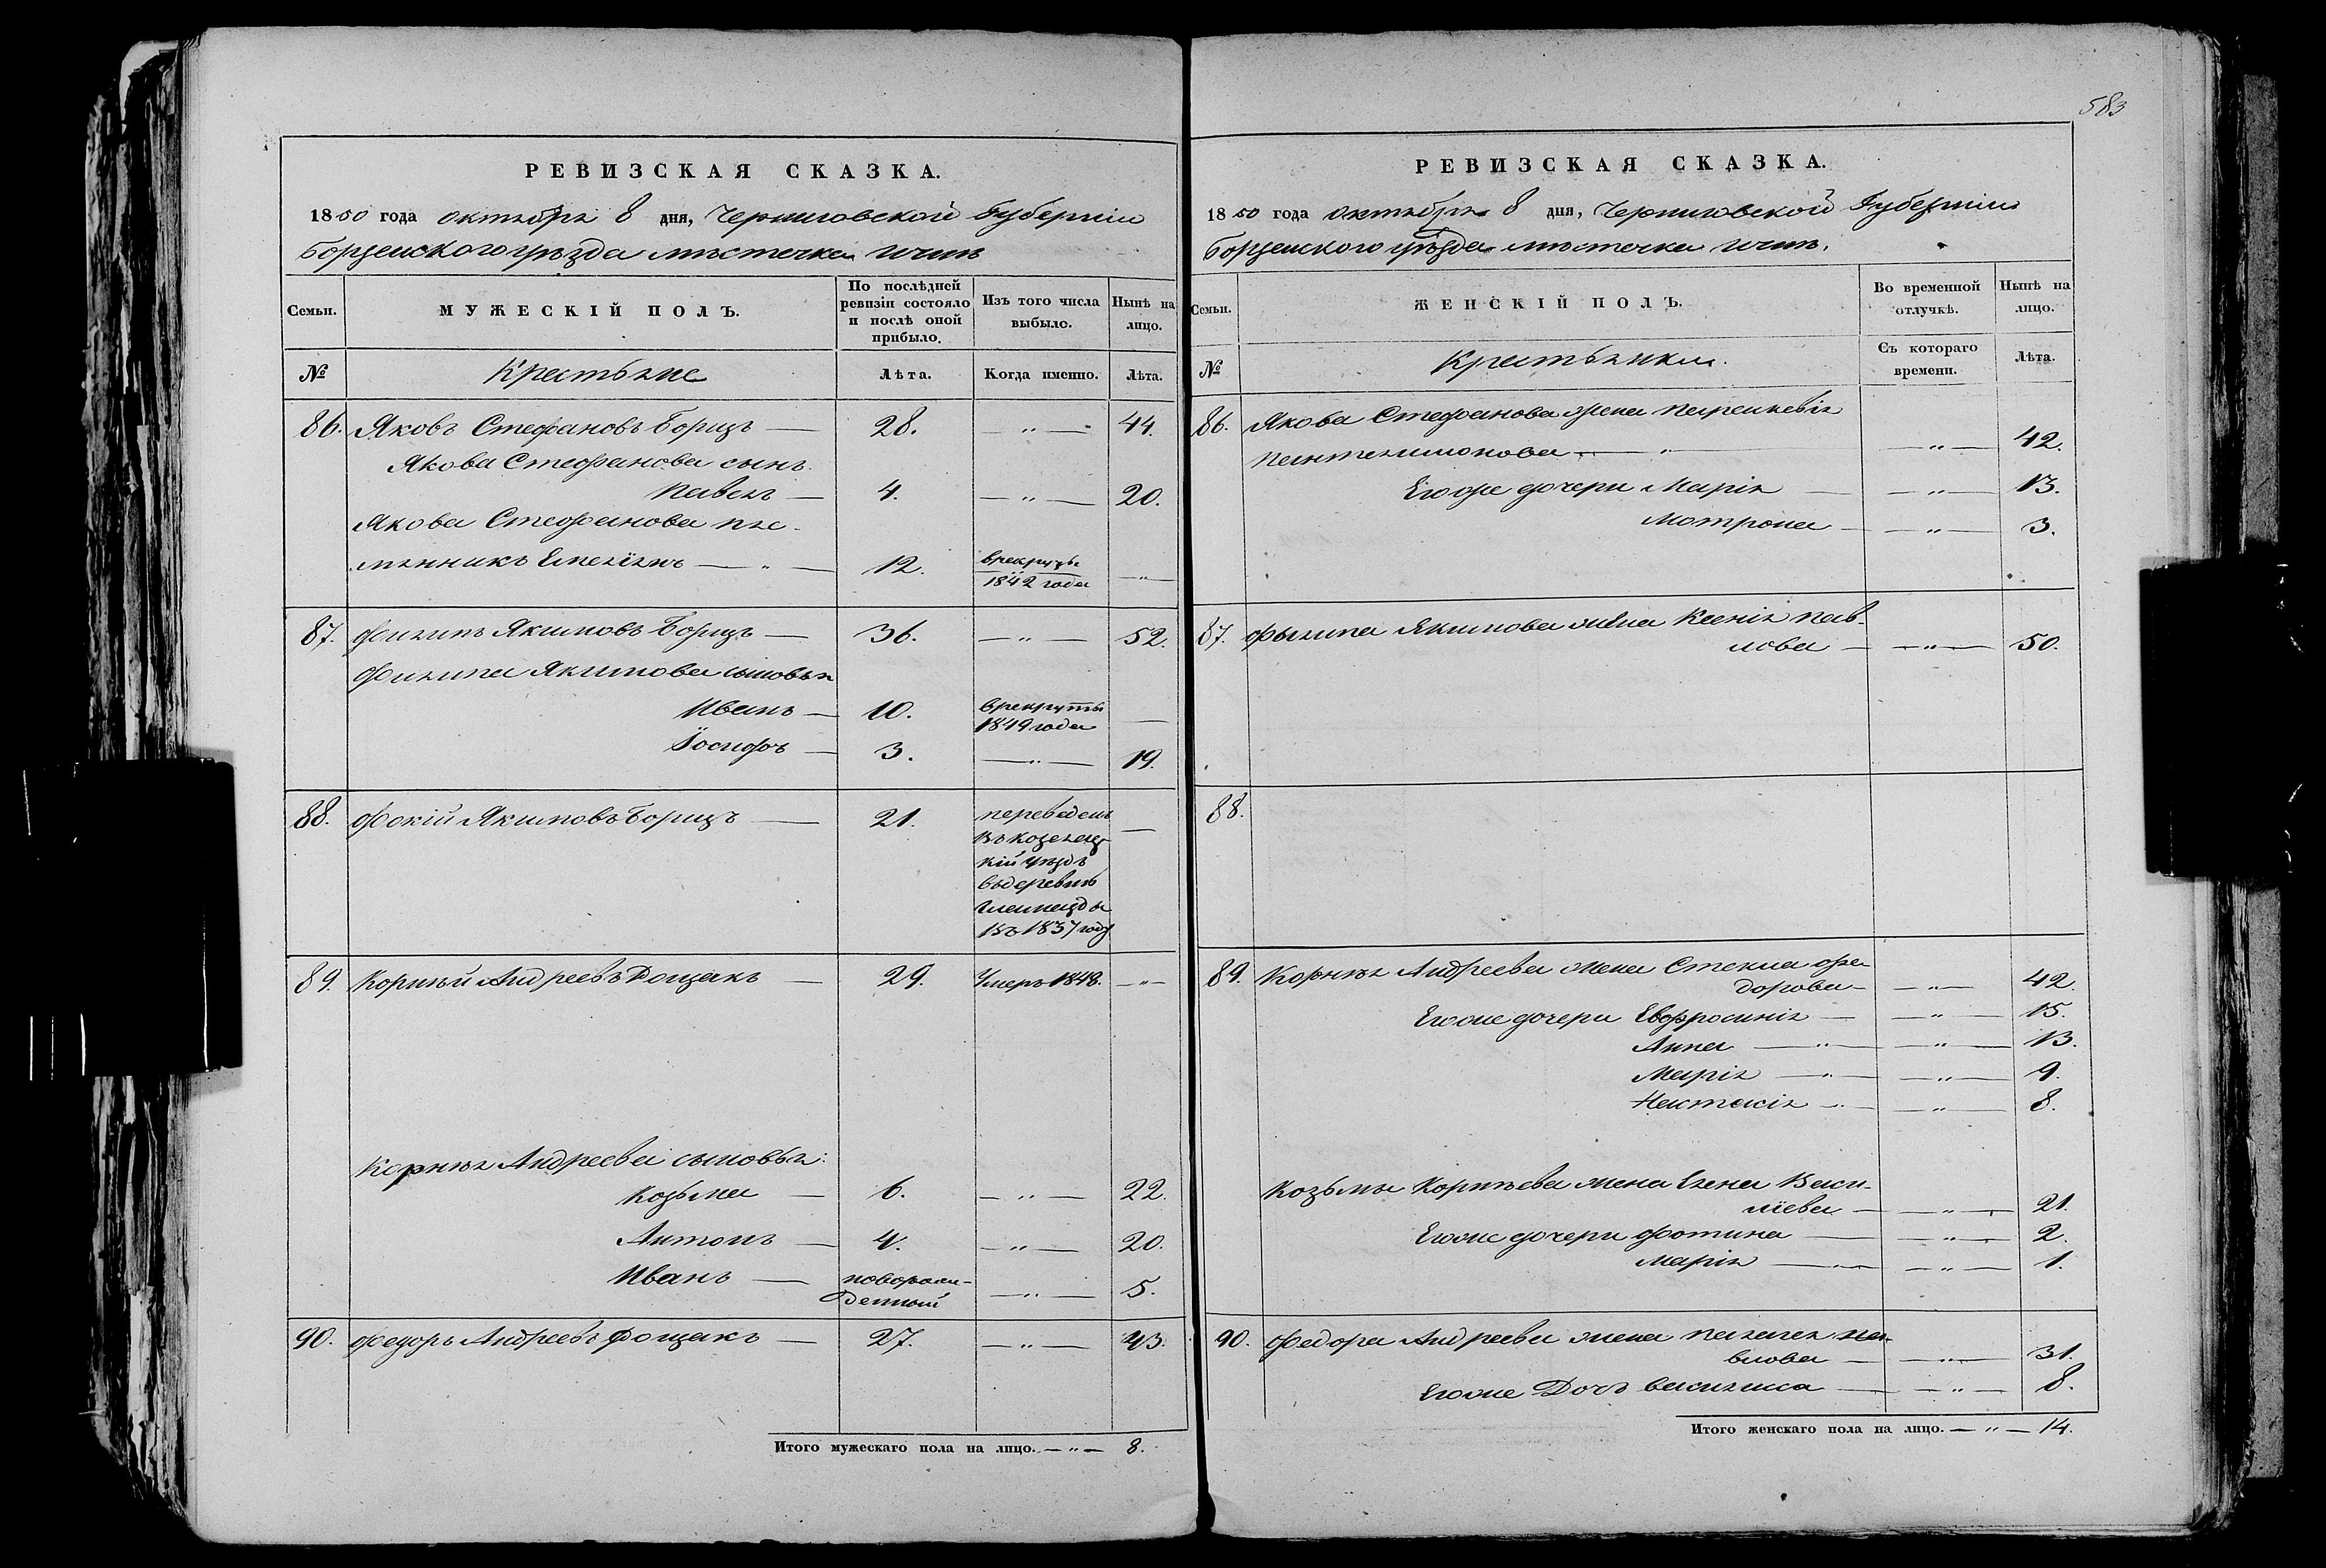 583
РЕВИЗСКАЯ СКАЗКА.
1850 года октября 8 дня, Черниговской Губерніи
Борзенского уѣзда мѣстечка Ични
Семьи.
МУЖЕСКІЙ ПОЛЪ.
По послѣдней ревизіи состояло и послѣ оной прибыло.
Изъ того числа выбыло.
Нынѣ на лицо.
№
Крестьяне
Лѣта.
Когда именно.
Лѣта.
86. Яковъ Стефановъ Борицъ — 28. — " — 44.
Якова Стефанова сынъ
Павелъ — 4. — " — 20.
Якова Стефанова пле-
мянникъ Емеліянъ — " — 12. врекруты 1842 года — " —
87. Филипъ Якимовъ Борицъ — 36. — " — 52.
Филипа Якимова сыновья
Иванъ — 10. врекруты 1849 года —
Іосифъ — 3. — " — 19.
88. Фокій Якимовъ Борицъ — 21. переведенъ —
въ Козелец-
кій уѣздъ
въ деревню
въ 1837 году
89. Корнѣй Андреевъ Дощакъ — 29. Умеръ 1848. — " —
Корнѣя Андреева сыновья:
Козьма — 6. — " — 22.
Антонъ — 4. — " — 20.
Иванъ — новорож-
денный — " — 5.
90. Федоръ Андреевъ Дощакъ — 27. — " — 43.
Итого мужескаго пола на лицо. — " — 8.
РЕВИЗСКАЯ СКАЗКА.
1850 года октября 8 дня, Черниговской Губерніи
Борзенского уѣзда мѣстечка Ични.
Семьи.
ЖЕНСКІЙ ПОЛЪ.
Во временной отлучкѣ.
Нынѣ на лицо.
№
Крестьянки.
Съ котораго времени.
Лѣта.
86. Якова Стефанова жена Параскевія
Пантелимонова — " — — " — 42.
Егоже дочери Марія — — " — 13.
Мотрона — — " — 3.
87. Филипа Якимова жена Ксенія Пав-
лова — — " — 50.
88.
89. Корнѣя Андреева жена Стехна Фе-
дорова — — " — 42.
Егоже дочери Евфросинія — — " — 15.
Анна — " — — " — 13.
Марія — " — — " — 9.
Настасія — " — — " — 8.
Козьмы Корнѣева жена Елена Васи-
ліева — — " — 21.
Егоже дочери Фотина — — " — 2.
Марія — " — — " — 1.
90. Федора Андреева жена Палагея Па-
влова — — " — 31.
Егоже Дочь Василиса — — " — 8.
Итого женскаго пола на лицо. — " — 14.